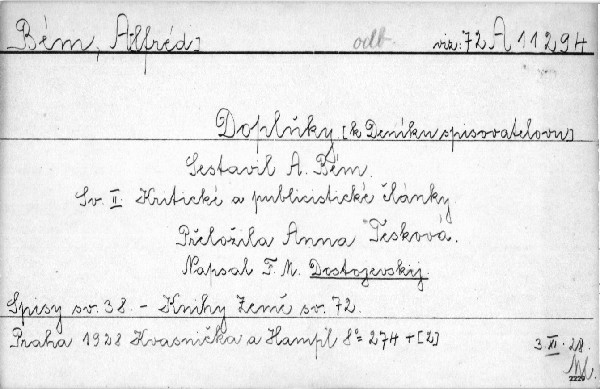 Bém, A[lfréd] odb. viz: 72 A 11294
Doplňky [k Deníku spisovatelovu]
Sestavil A. Bém.
Sv. II. Kritické a publicistické články
Přeložila Anna Tesková.
Napsal F. M. Dostojevskij.
Spisy sv. 38. - Knihy Země sv. 72.
Praha 1928 Kvasnička a Hampl 8° 274 + [2]
3. XI. 28.